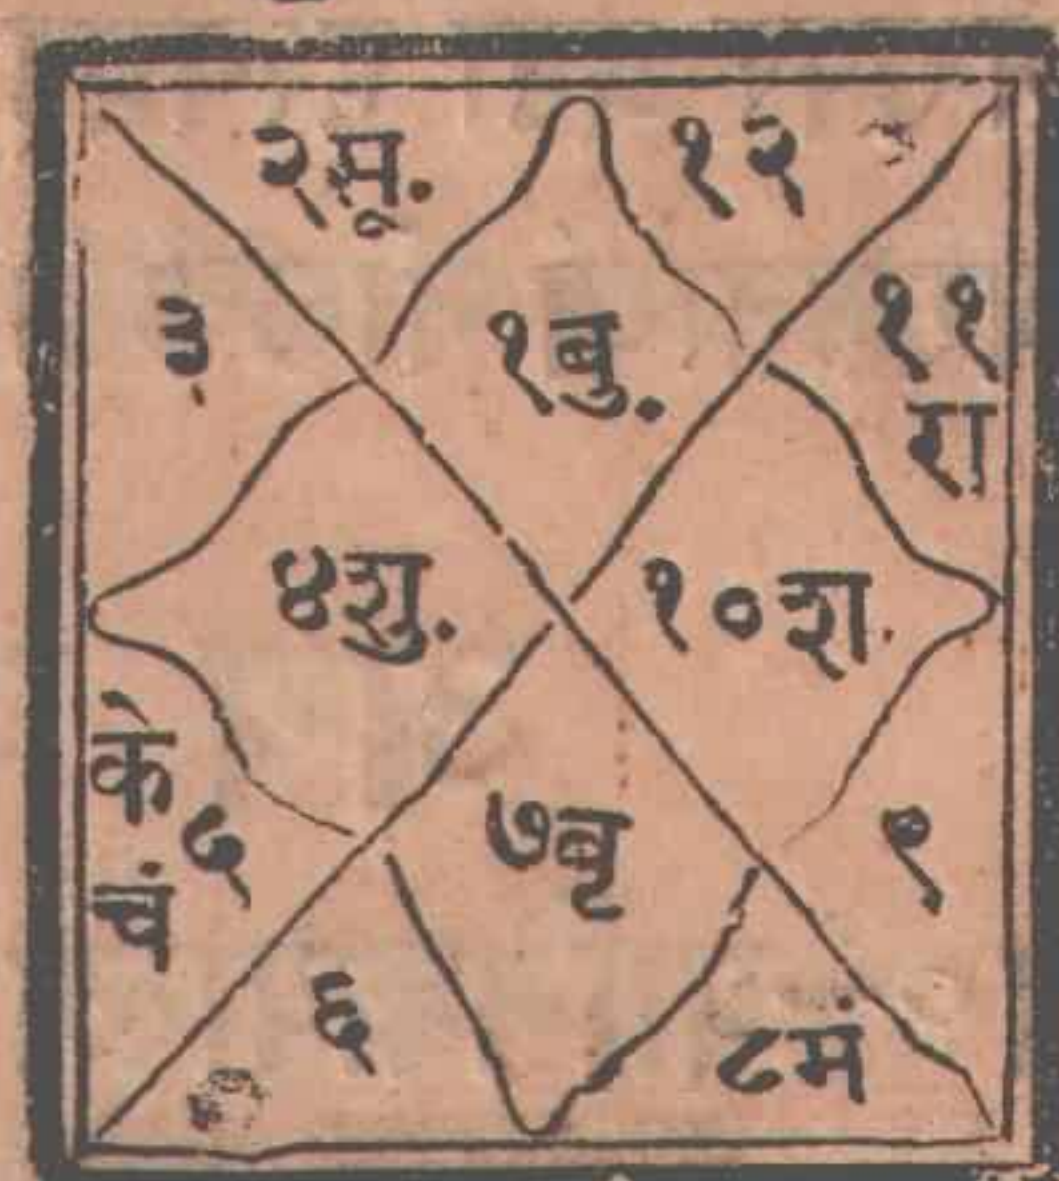 २सू.
१२
३
१बु.
११
रा
४शु.
१०श.
के
५
चं
७बृ
९
६
८मं